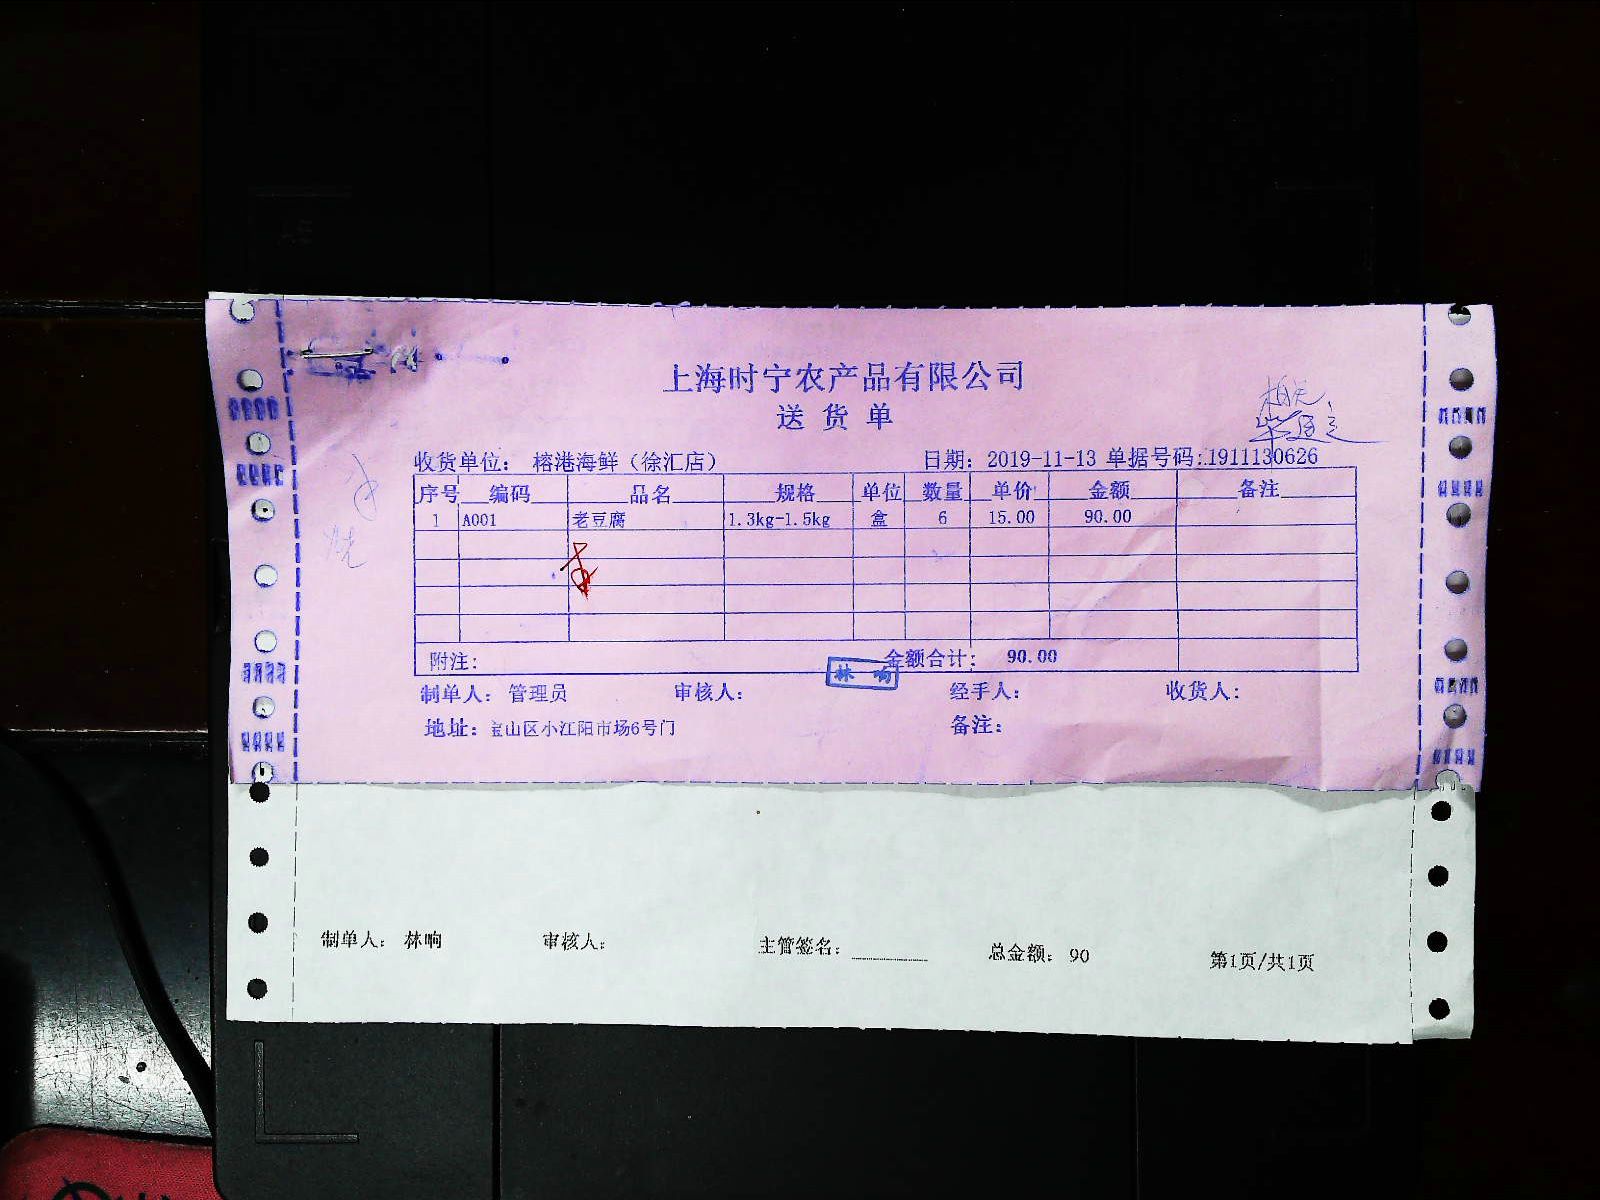 上海时宁农产品有限公司
送货单
收货单位： 榕港海鲜（徐汇店） 日期：2019-11-13 单据号码:1911130626
序号 编码 品名 规格 单位 数量 单价 金额 备注
1 A001 老豆腐 1.3kg-1.5kg 盒 6 15.00 90.00
附注： 金额合计： 90.00
林响
制单人： 管理员 审核人： 经手人： 收货人：
地址：宝山区小江阳市场6号门 备注：
制单人： 林响 审核人： 主管签名： 总金额： 90 第1页/共1页